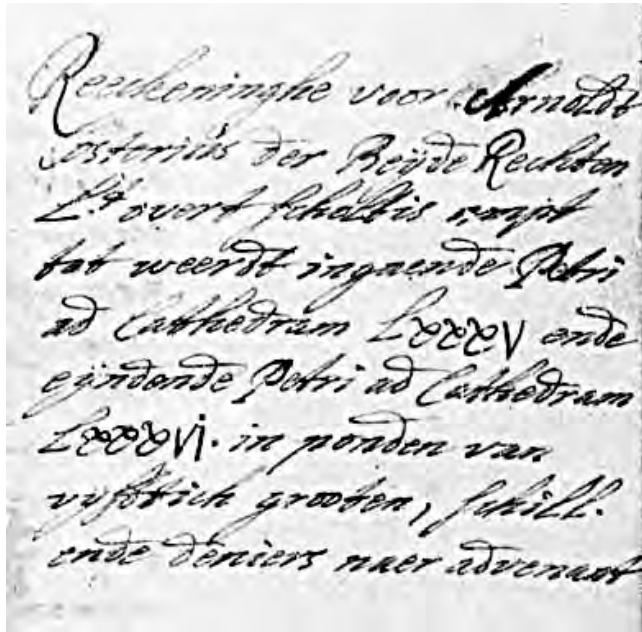 Reeckeninghe voor Arnoldt
Costerius der Beijde Rechten
L.t overt scholtis ampt
tot weerdt ingaende Petri
ad Cathedram Lxxxxv ende
eijndende Petri ad Cathedram
Lxxxxvi. in ponden van
vijfftich grooten, schill.
ende deniers naer advenant